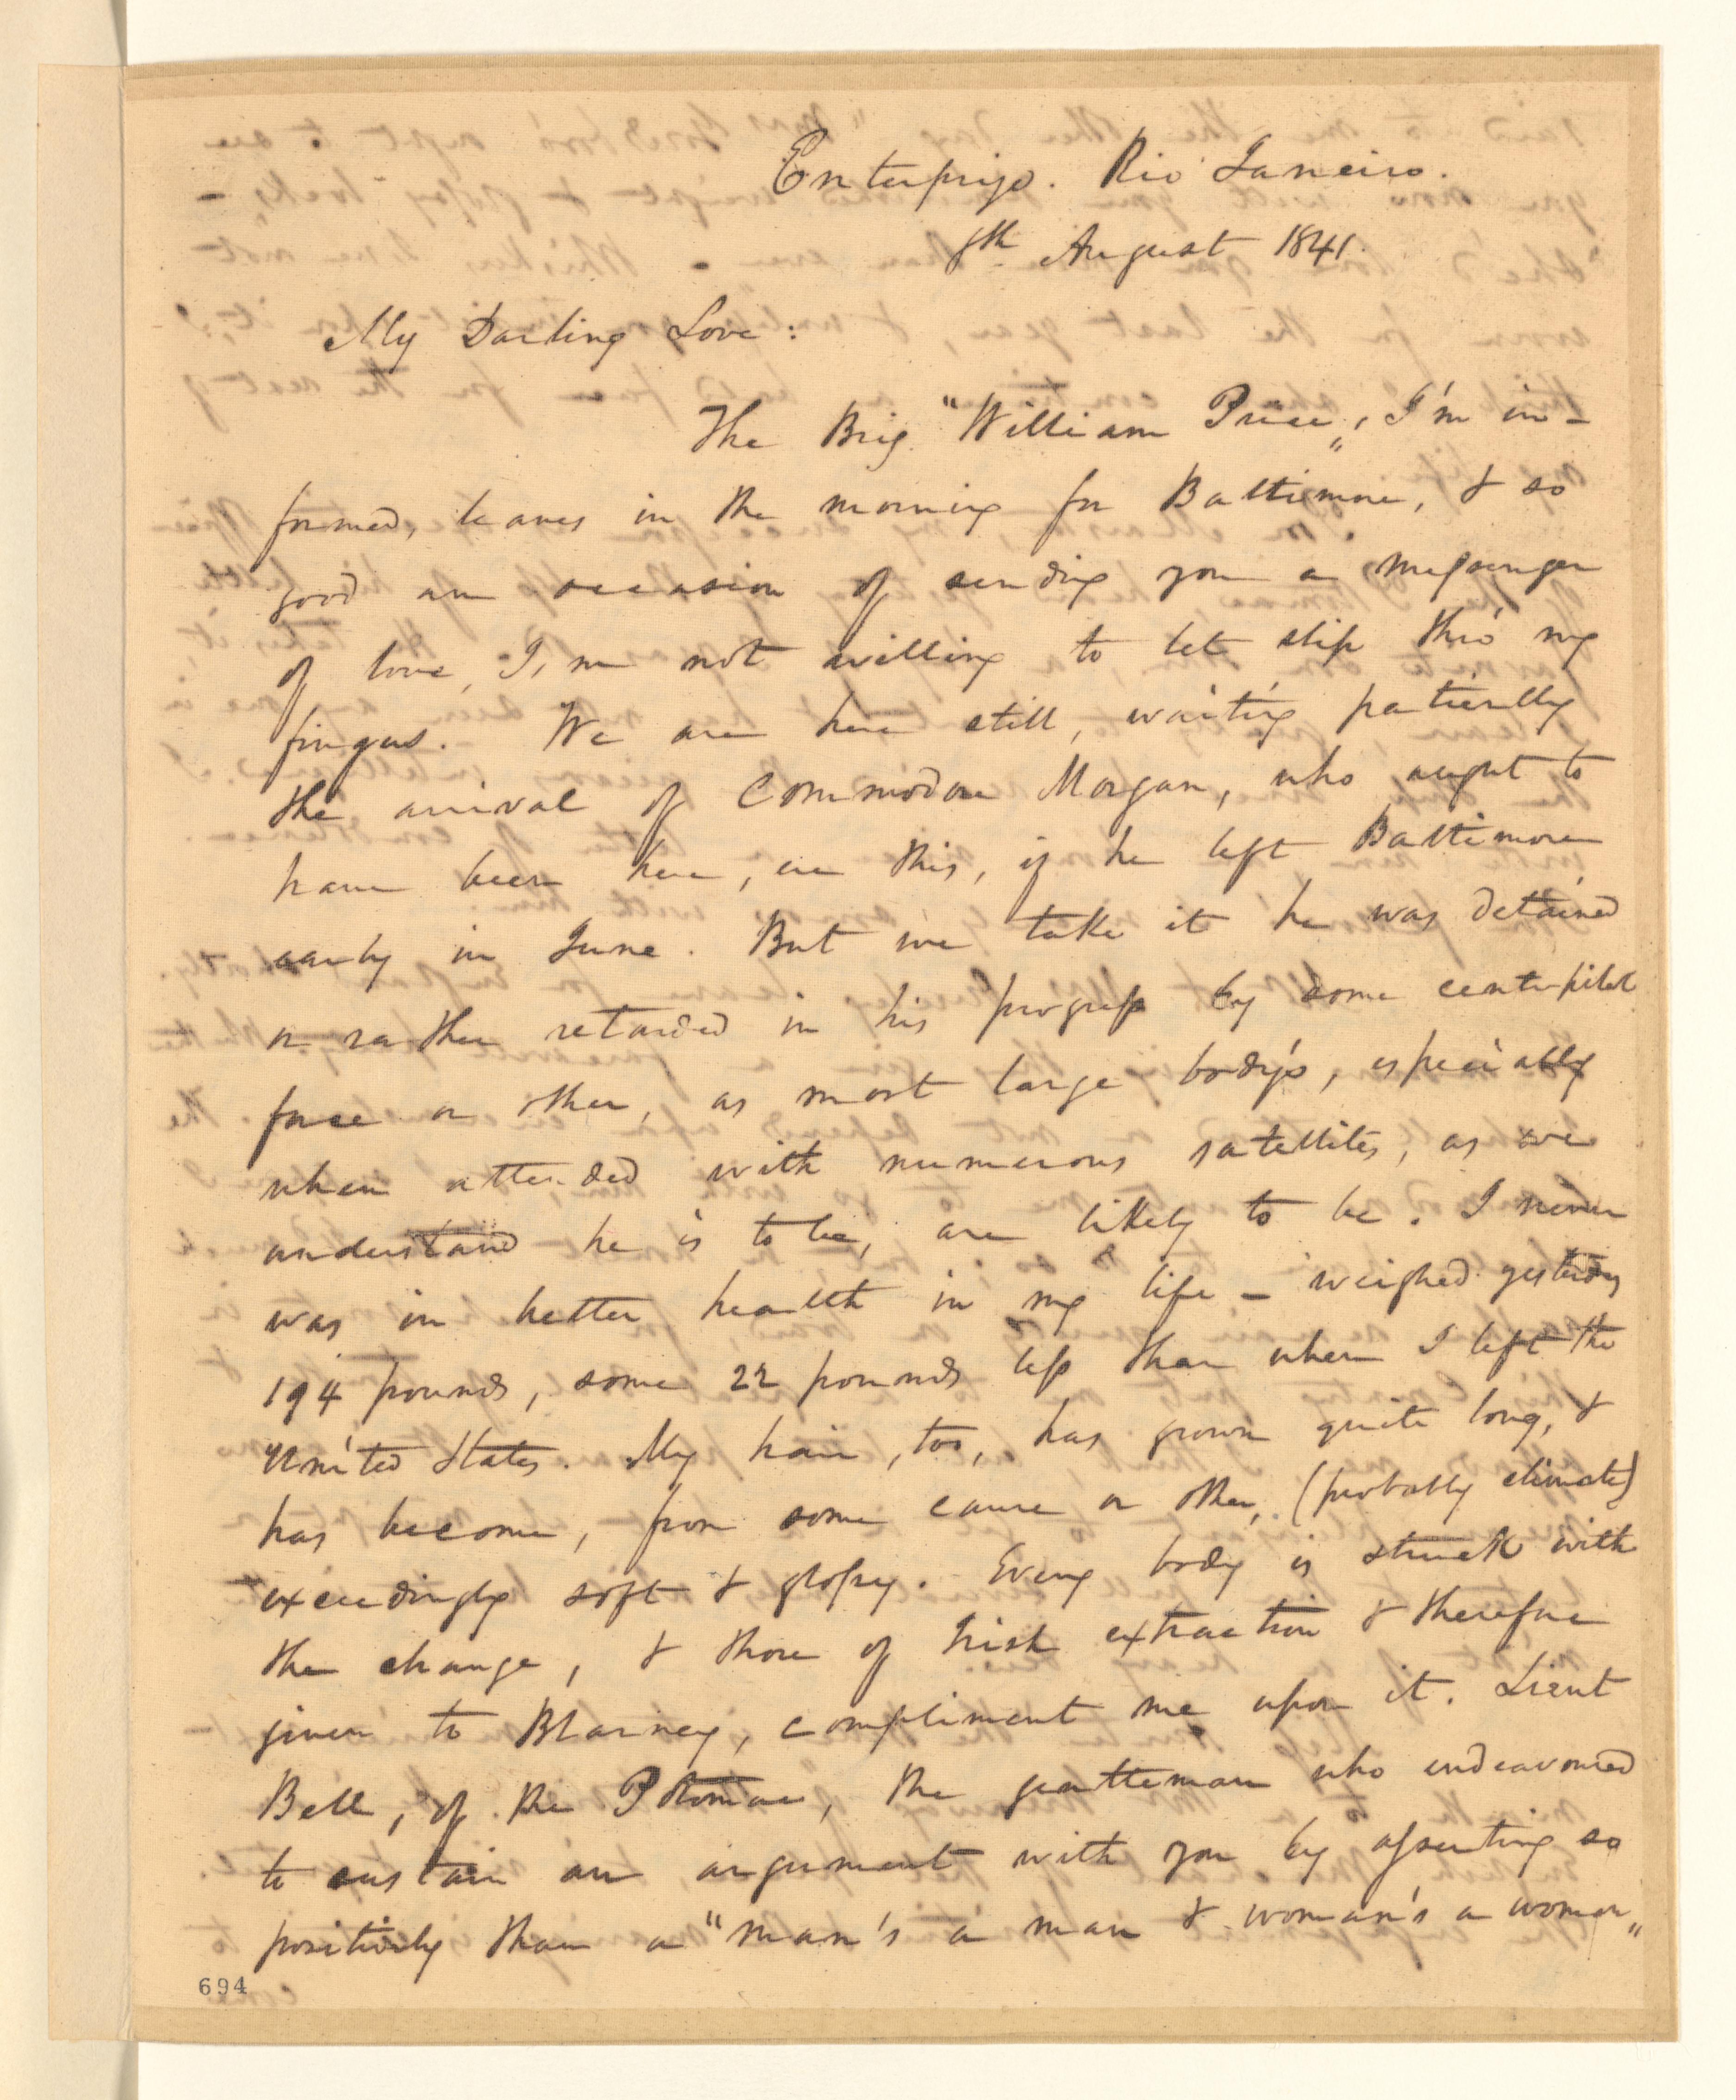 Enterprise. Rio Janeiro.
8th August 1841.
My Darling Love:
The Brig. "William Price", I'm in-
formed, leaves in the morning for Baltimore, & so
good an occasion of sending you a messenger
of love, I,m not willing to let slip thro' my
fingers. We are here still, waiting patiently
the arrival of Commodore Morgan, who aught to
have been here, ere this, if he left Baltimore
early in June. But we take it he was detained
or rather retarded in his progress by some centripital
force or other, as most large body's, especially
when attended with numerous satellites, as we
understand he is to be, are likely to be. I never
was in better health in my life - weighed yesterday
194 pounds, some 22 pounds less than when I left the
United States. My hair, too, has grown quite long, &
has become, from some cause or other, (probably climate)
exceedingly soft & glossy. Every body is struck with
the change, & those of Irish extraction & therefore
given to Blarney, compliment me upon it. Lieut
Bell, of the Potomac, the gentleman who endeavoured
to sustain an argument with you by asserting so
positively than a "man's a man & woman's a woman"
694